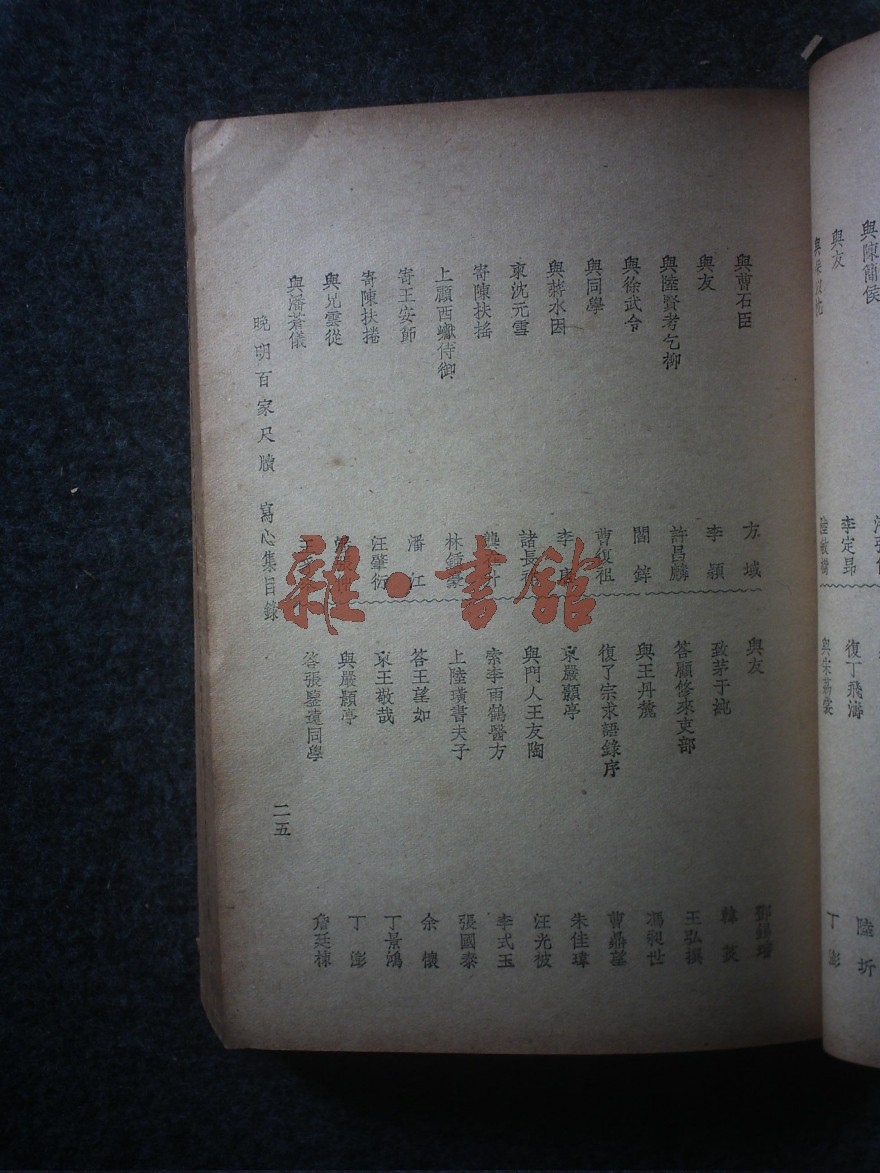 與曹石臣
方域
與友
李穎
與陸賢考乞柳
許昌麟
與徐武令
閻鋅
與同學
曹復祖
與蔣水因
李
柬沈元雪
諸長
寄陳扶搖
上顧西巘侍御
林
寄王安節
潘江
寄陳扶捲
汪肇衍
與兄雲從
世
與潘蒼儀
與友
鄧
致茅于純
韓菼
答顧修來吏部
王弘撰
與王丹麓
馮昶世
復了宗求語錄序
曹鼎望
柬嚴顥亭
朱佳瑋
與門人王友陶
汪光被
索李雨鶴醫方
李式玉
上陸璜書夫子
張國泰
答王望如
余懷
柬王敬哉
丁景鴻
與嚴顥亭
丁澎
答張鑒遠同學
詹廷棟
晚明百家尺牘 寫心集目錄
二五
與陳簡侯
陸圻
與友
李定昂
復丁飛濤
丁澎
與宋荔裳
雜·書館